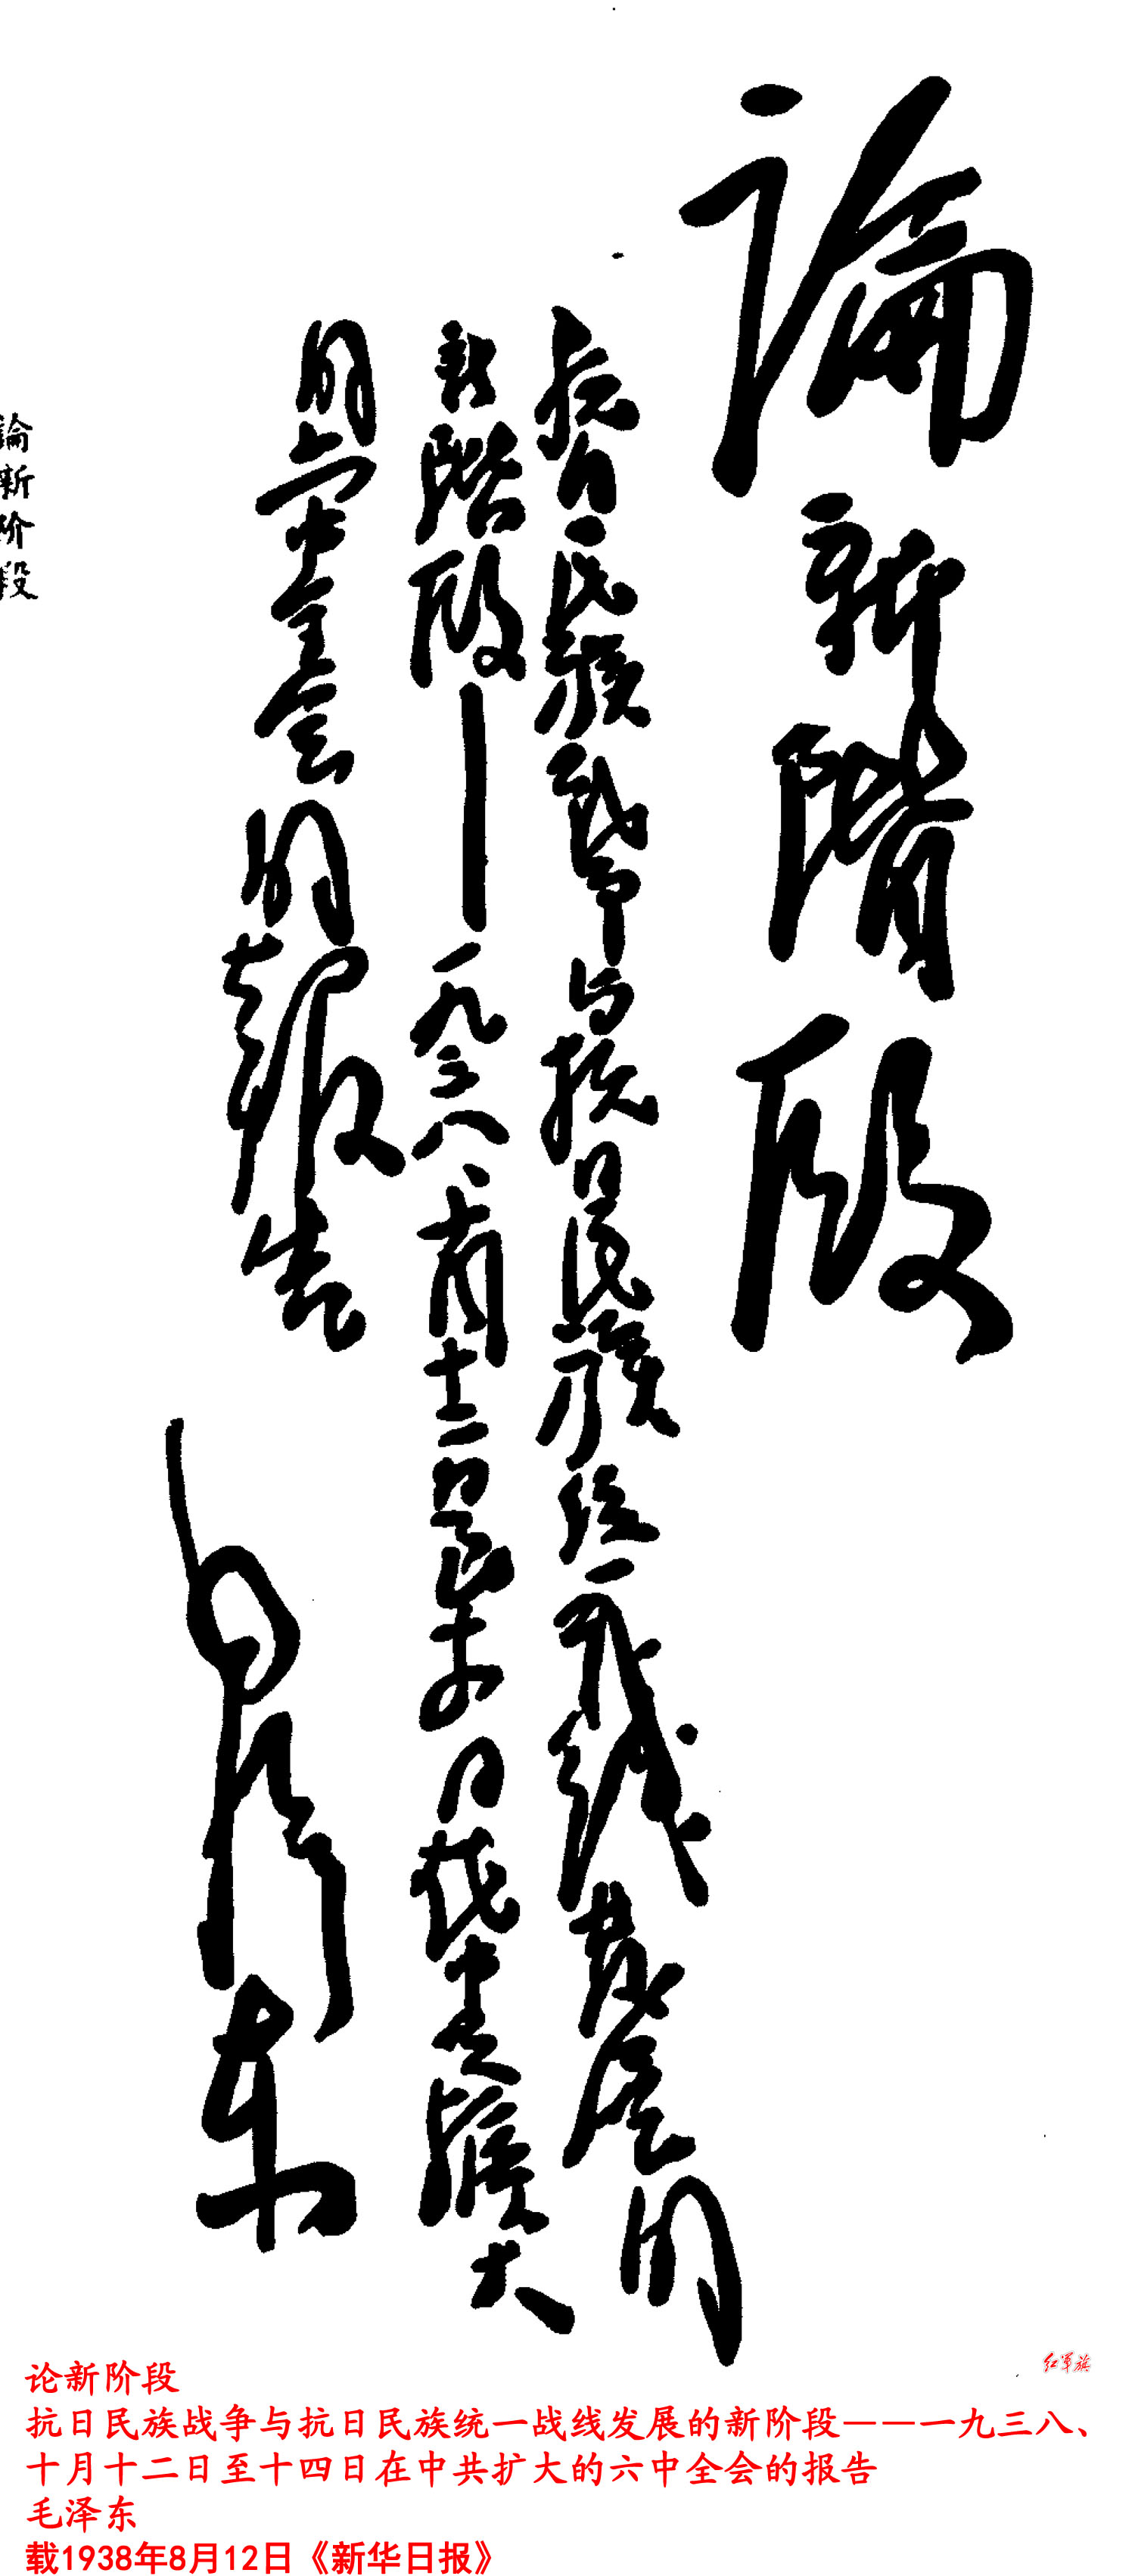 論新階段
抗日民族战争与抗日民族统一战线发展的
新階段——一九三八、十月十二日至十四日在中共擴大
的六中全会的報告
毛泽东
論新阶段
红军旗
论新阶段
抗日民族战争与抗日民族统一战线发展的新阶段——一九三八、
十月十二日至十四日在中共扩大的六中全会的报告
毛泽东
载1938年8月12日《新华日报》